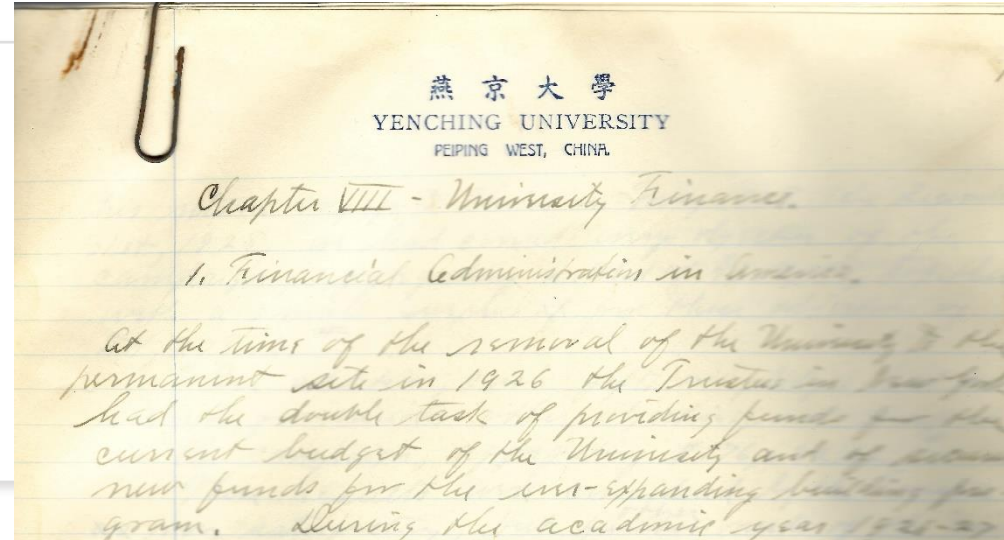 燕京大學
YENCHING UNIVERSITY
PEIPING WEST, CHINA.
Chapter VIII - University Finance.
1. Financial Administration in America.
At the time of the removal of the University to the
permanent site in 1926 the Trustees in New York
had the double task of providing funds for the
current budget of the University and of
new funds for the ever-expanding building pro
gram. During the academic year 1926-27